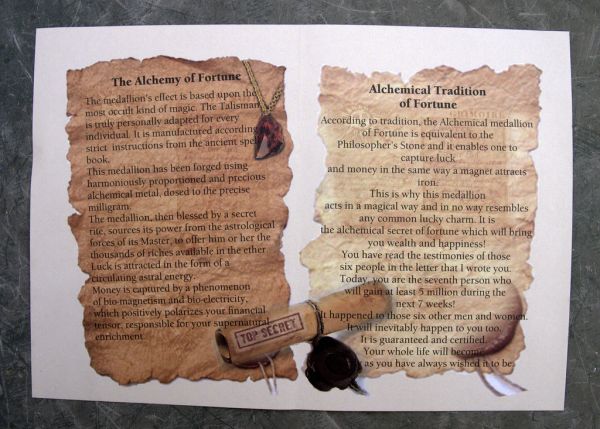 The Alchemy of Fortune
The medallion's effect is based upon the
most occult kind of magic. The Talisman
is truly personally adapted for every
individual. It is manufactured according
strict instructions from the ancient spell
book.
This medallion has been forged using
harmoniously proportioned and precious
alchemical metal, dosed to the precise
milligram.
The medallion, then blessed by a secret
rite, sources its power from the astrological
forces of its Master, to offer him or her the
thousands of riches available in the ether.
Luck is attracted in the form of a
circulating astral energy.
Money is captured by a phenomenon
of bio-magnetism and bio-electricity,
which positively polarizes your financial
tensor, responsible for your supernatural
enrichment
TOP SECRET
Alchemical Tradition
of Fortune
According to tradition, the Alchemical medallion
of Fortune is equivalent to the
Philosopher's Stone and it enables one to
capture luck
and money in the same way a magnet attracts
iron.
This is why this medallion
acts in a magical way and in no way resembles
any common lucky charm. It is
the alchemical secret of fortune which will bring
you wealth and happiness!
You have read the testimonies of those
six people in the letter that I wrote you.
Today, you are the seventh person who
will gain at least 5 million during the
next 7 weeks!
It happened to those six other men and women.
It will inevitably happen to you too.
It is guaranteed and certified.
Your whole life will become
as you have always wished it to be.